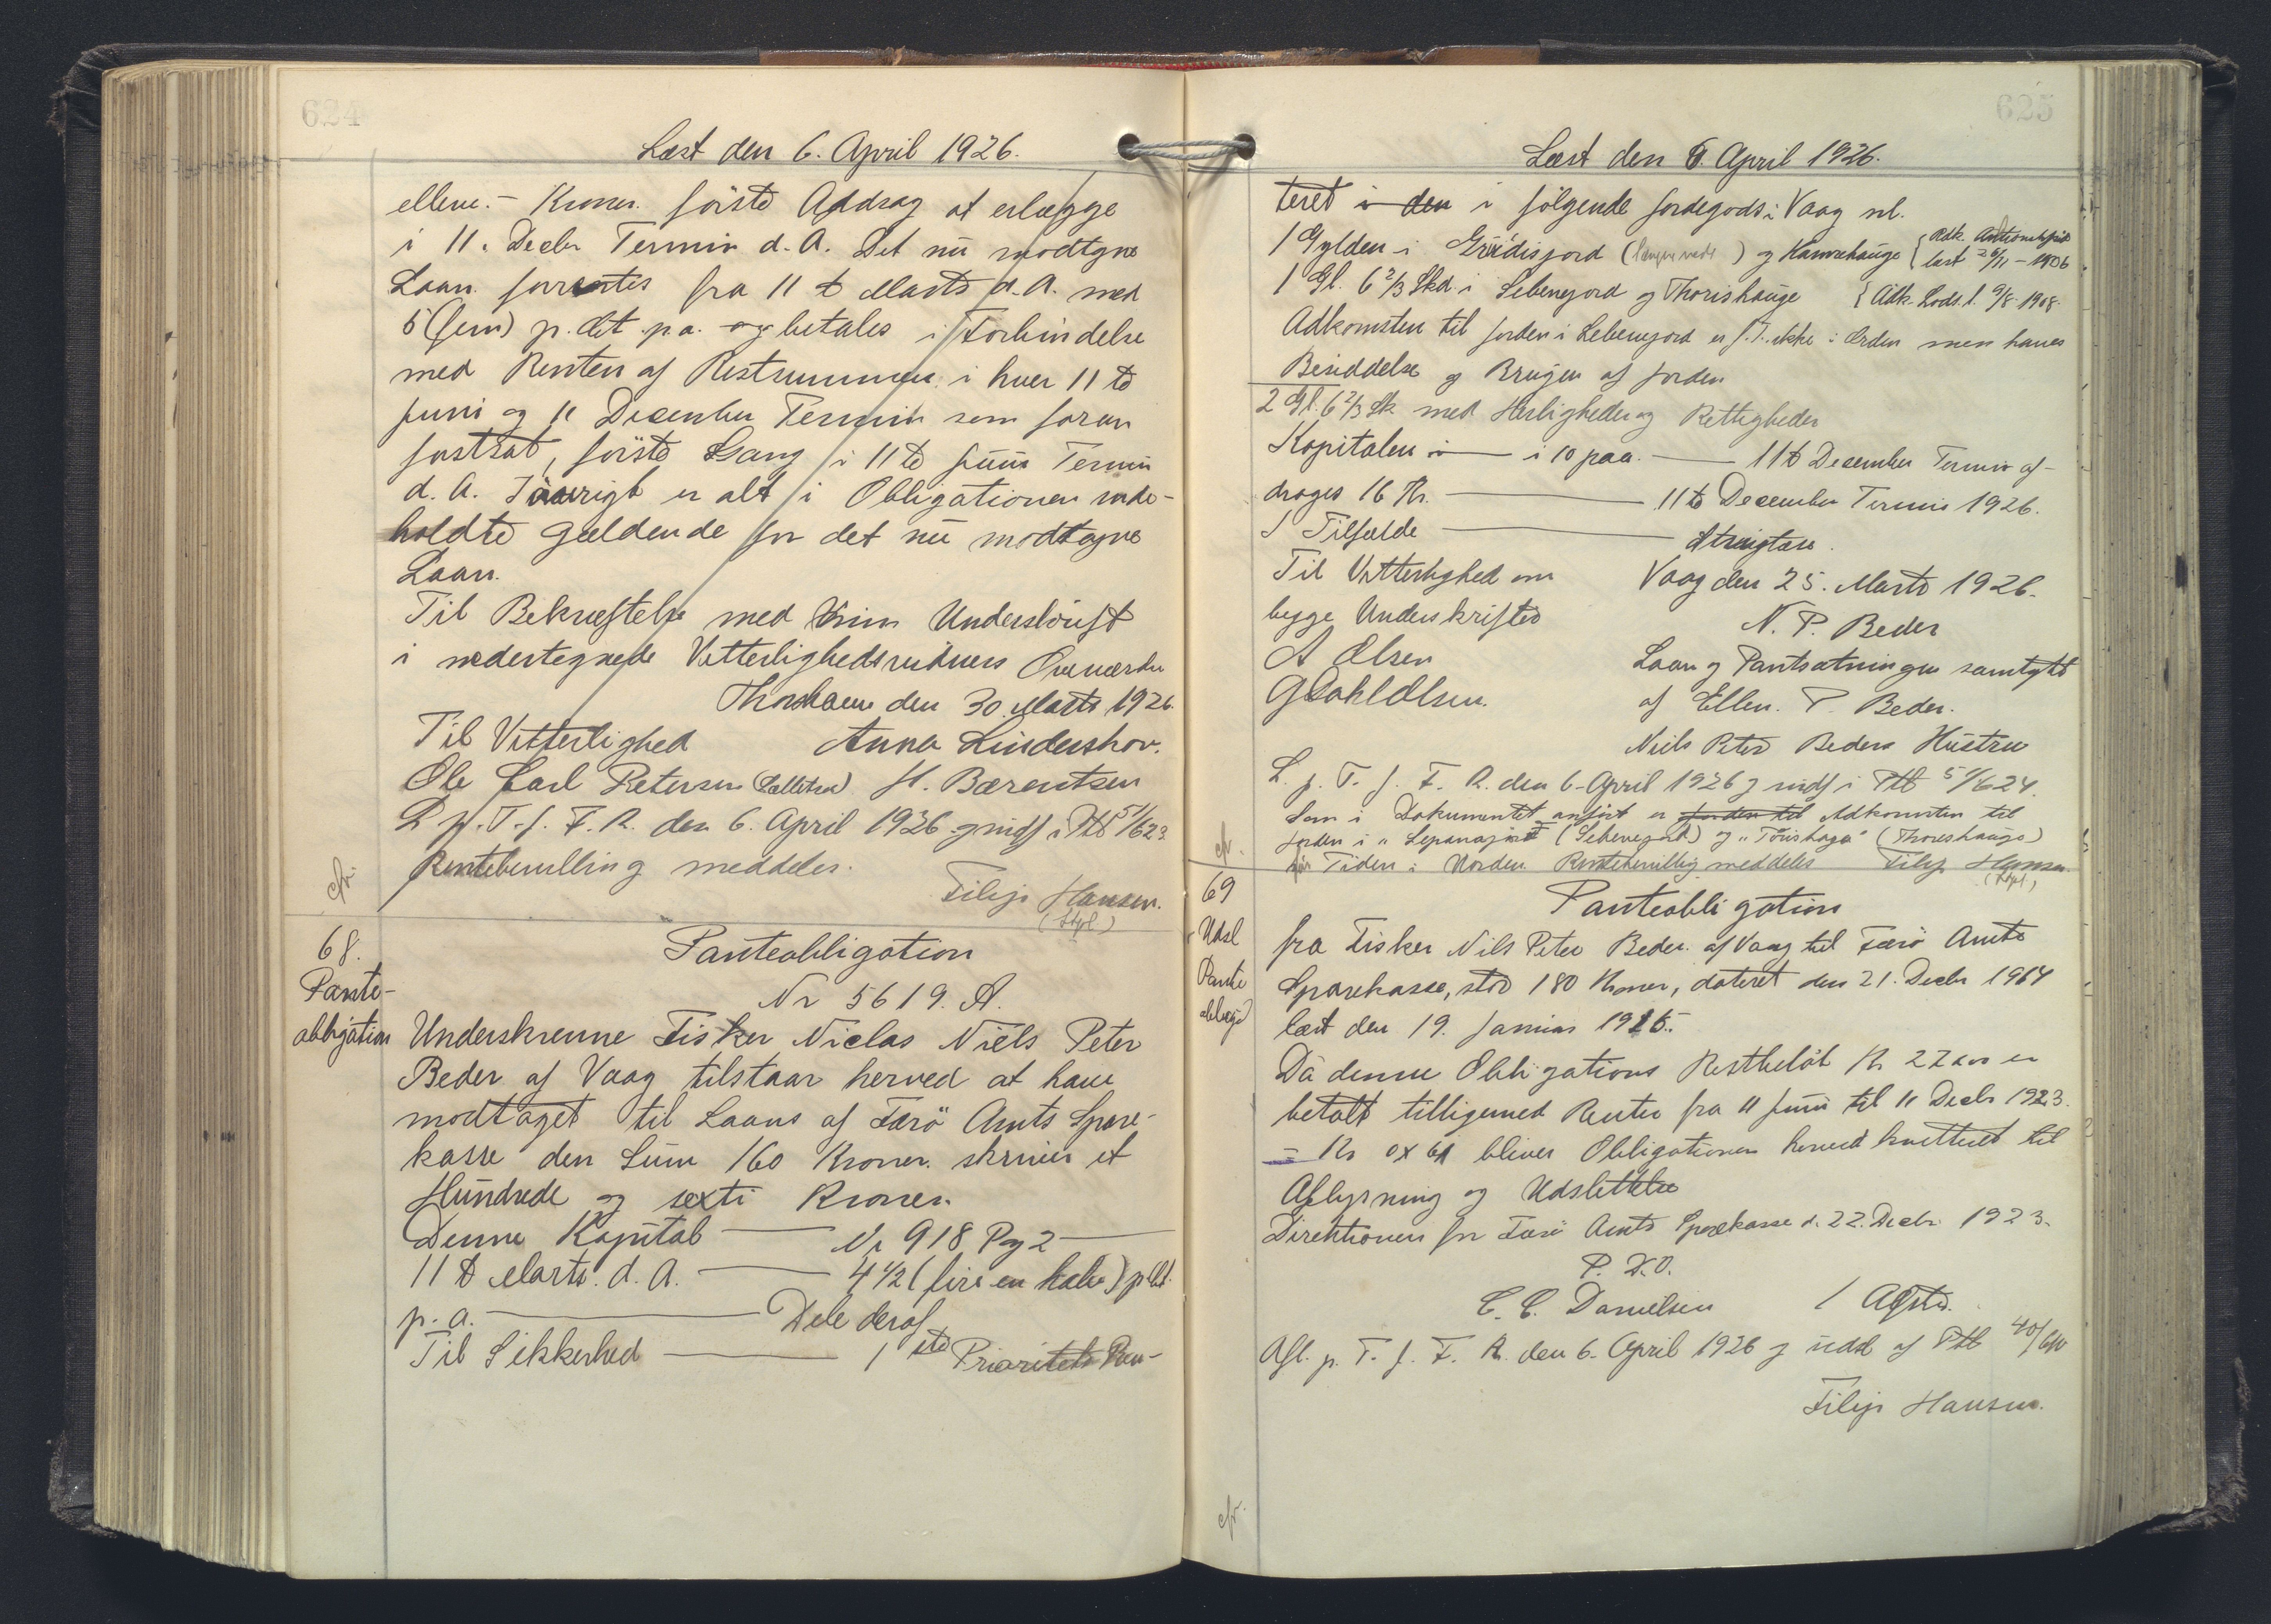 624
Læst den 6. April 1926.
elleve.- Kroner. förste Afdrag at erlægge
i 11. Decbr Termin d.A. Det nu modtgne
Laan forrentes fra 11 t Marts d.A. med
5 (fem) p. Ct. p.a. og betales i Forbindelse
med Renten af Restsummen i hver 11 te
Juni og 11 December Termin som foran
fastsat, förste Gang i 11 te Juni Termin
d.A. Iövrigt er alt i Obligationen inde-
holdte gældende for det nu modtagne
Laan.
Til Bekræftelse med min Underskrift
i nedertegnede Vitterlighedsvidners Overværelse
Thorshavn den 30. Marts 1926.
Til Vitterlighed Anna Lindershov.
Ole Carl Petersen H. Bærentsen
L. p. T. f. F. R. den 6. April 1926 g indf i Ptb 51/623
Rentebevilling meddeles.
Filip Hansen.
(Stpl)
cfr.
68.
Pante-
obligation
Panteobligation
Nr 5619. A.
Underskrevne Fisker Niclas Niels Peter
Beder af Vaag tilstaar herved at have
modtaget til Laans af Færö Amts Spare-
kasse den Sum 160 Kroner. skriver et
Hundrede og sexti Kroner.
Denne Kapital — Nr 918 Pag 2 —
11 t Marts. d. A. — 4 1/2 (fire en halv) p Ct.
p. a. — Dele deraf
Til Sikkerhed — 1 ste Prioritets Pan-
625
Læst den 6. April 1926.
teret i den i fölgende Jordegods i Vaag nl.
1 Gylden i Grödisjord ( ) og Kamrehauge { Adk. Auktionsskjøde
læst 28/11 - 1906
1 Gl. 6 2/3 Skd. i Lebenejord og Thorishauge { Adk. Lods. l. 9/8 1908.
Adkomsten til Jorden i Lebenejord er p. T. ikke i Orden men haves
Besiddelse og Brugen af Jorden
2 Gl. 6 2/3 Sk med Herligheder og Rettigheder
Kapitalen i — i 10 paa. — 11 te December Termin af-
drages 16 Kr. — 11 te December Termin 1926.
I Tilfælde —
Til Vitterlighed om Vaag den 25. Marts 1926.
begge Underskrifter N. P. Beder
A Olsen Laan og Pantsætningen samtykt
G Dahl Olsen. af Ellen. P. Beder.
Niels Peter Beders Hustru
L. p. T. f. F. R. den 6. April 1926 g indf i Ptb 51/624.
Som i Dokumentet anført er Jorden til Adkomsten til
Jorden i " Lepanajord (Lebenejord) og "Tórishaga" (Thoreshauge)
for Tiden i Uorden Rentebevillig meddeles Filip Hansen.
(Stpl)
cfr.
69
Udsl
Pante
obliga
Panteobligation
fra Fisker Nils Peter Beder. af Vaag til Færö Amts
Sparekasse, stor 180 Kroner, dateret den 21. Decbr 1914
læst den 19. Januar 1915.
Da denne Obligations Restbelöb Kr 27 er
betalt tilligemed Renter fra 11 Juni til 11 Decbr 1923.
= Kr 0 x 61 bliver Obligationen herved kvitteret til
Aflysning og Udslettelse
Direktionen for Færö Amts Sparekasse d. 22. Decbr. 1923.
P. D. V.
C. C. Danielsen /
Afl. p. T. f. F. R. den 6. April 1926 g udsl af Ptb 40/640
Filip Hansen.
cfr.